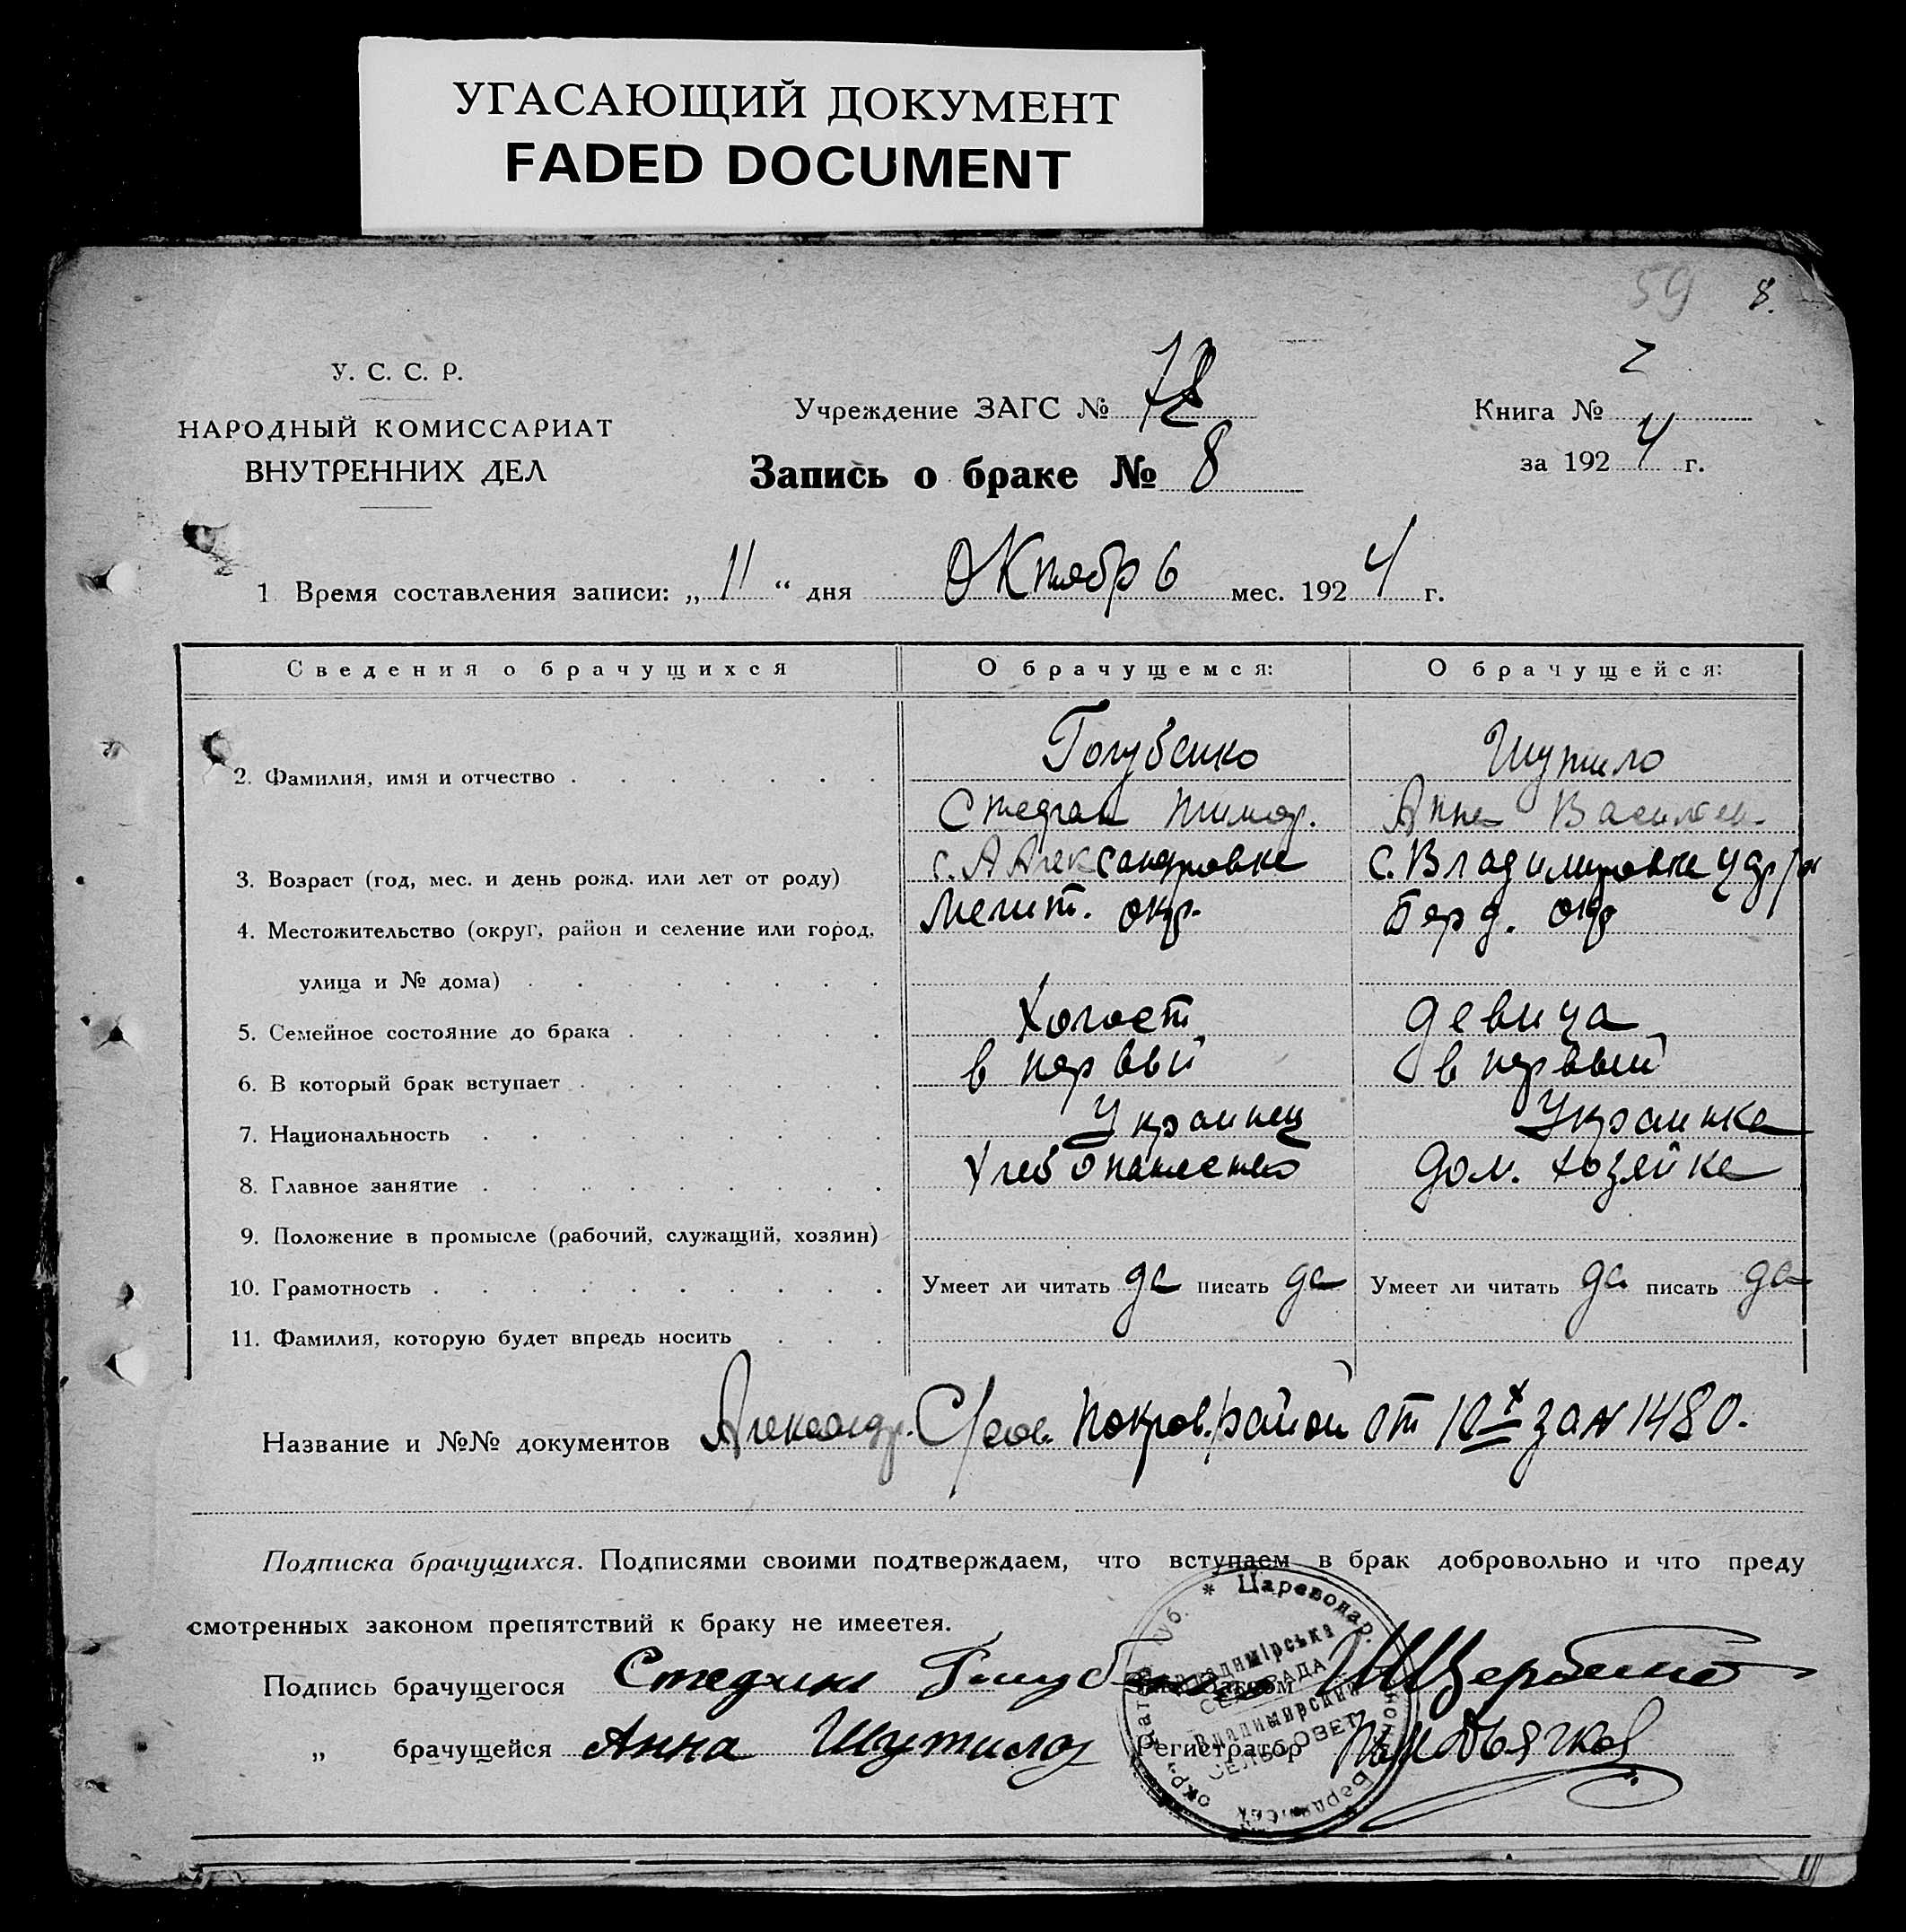 УГАСАЮЩИЙ ДОКУМЕНТ
FADED DOCUMENT
59 8.
У. С. С. Р.
НАРОДНЫЙ КОМИССАРИАТ
ВНУТРЕННИХ ДЕЛ
Учреждение ЗАГС № 78
Запись о браке № 8
Книга № 2
за 1924 г.
1 Время составления записи: „ 11 “ дня Октябрь мес. 1924 г.
Сведения о брачущихся О брачущемся: О брачущейся:
2. Фамилия, имя и отчество Голубенко Шутило
Стефан Тимоф. Анна Васильев.
3. Возраст (год, мес. и день рожд. или лет от роду) с. Александровка с. Владимировка
4. Местожительство (округ, район и селение или город, Мелит. окр. Берд. окр
улица и № дома)
5. Семейное состояние до брака Холост девица
6. В который брак вступает в первый в первый
7. Национальность Украинец Украинка
8. Главное занятие Хлебопашество Дом. хозяйка
9. Положение в промысле (рабочий, служащий, хозяин)
10. Грамотность Умеет ли читать да писать да Умеет ли читать да писать да
11. Фамилия, которую будет впредь носить
Название и №№ документов Александр. С/сов. Покров. район от 10 X за № 1480.
Подписка брачущихся. Подписями своими подтверждаем, что вступаем в брак добровольно и что преду
смотренных законом препятствий к браку не имеетея.
Подпись брачущегося Стефан Голубенко
„ брачущейся Анна Шутило Регистратор
* Цареводар.
Владимірська
СЕЛЬРАДА
Владимирский
СЕЛЬСОВЕТ